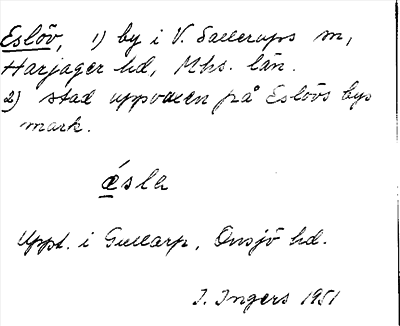 Eslöv, 1) by i V. Sallerups sn,
Harjager hd, Mhs. län.
2) stad uppvuxen på Eslövs bys
mark.
ǽsla
Uppt. i Gullarp, Onsjö hd.
I. Ingers 1951